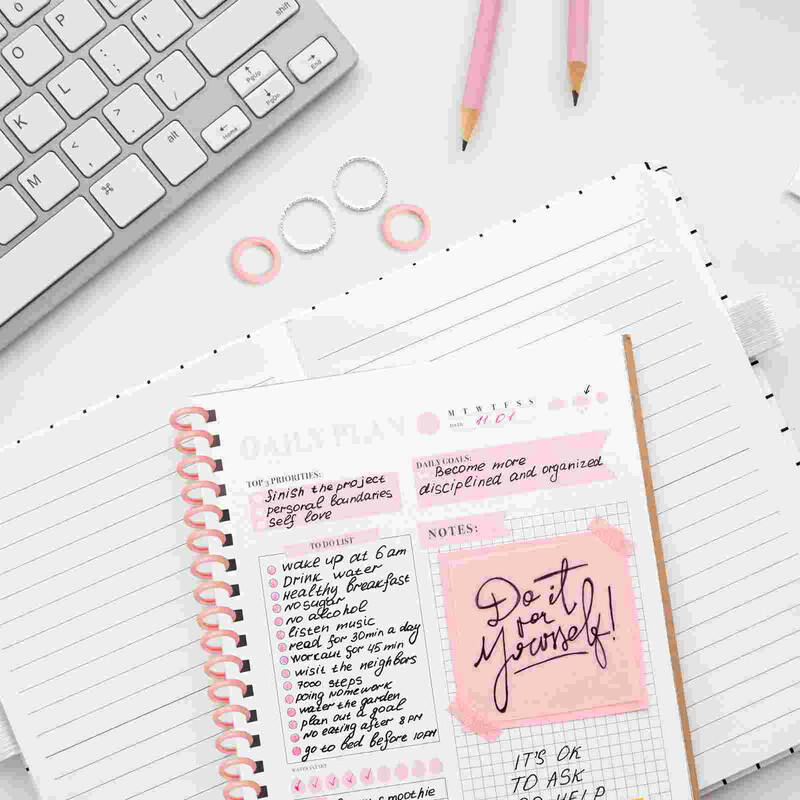 shift
O
L
K
M
alt
PgUp
PgDn
Home
End
DAILY PLAN
M T W T F S S
DATE: 11.01
TOP 3 PRIORITIES:
finish the project
personal boundaries
self love
DAILY GOALS:
Become more
disciplined and organized
TO DO LIST
wake up at 6 am
Drink water
Healthy breakfast
NO sugar
no alcohol
listen music
read for 30min a day
workout for 45 min
visit the neighbors
7000 steps
Doing homework
water the garden
plan out a goal
NO eating after 8 PM
go to bed before 10PM
NOTES:
Do it
for
yourself!
IT'S OK
TO ASK
HELP
smoothie